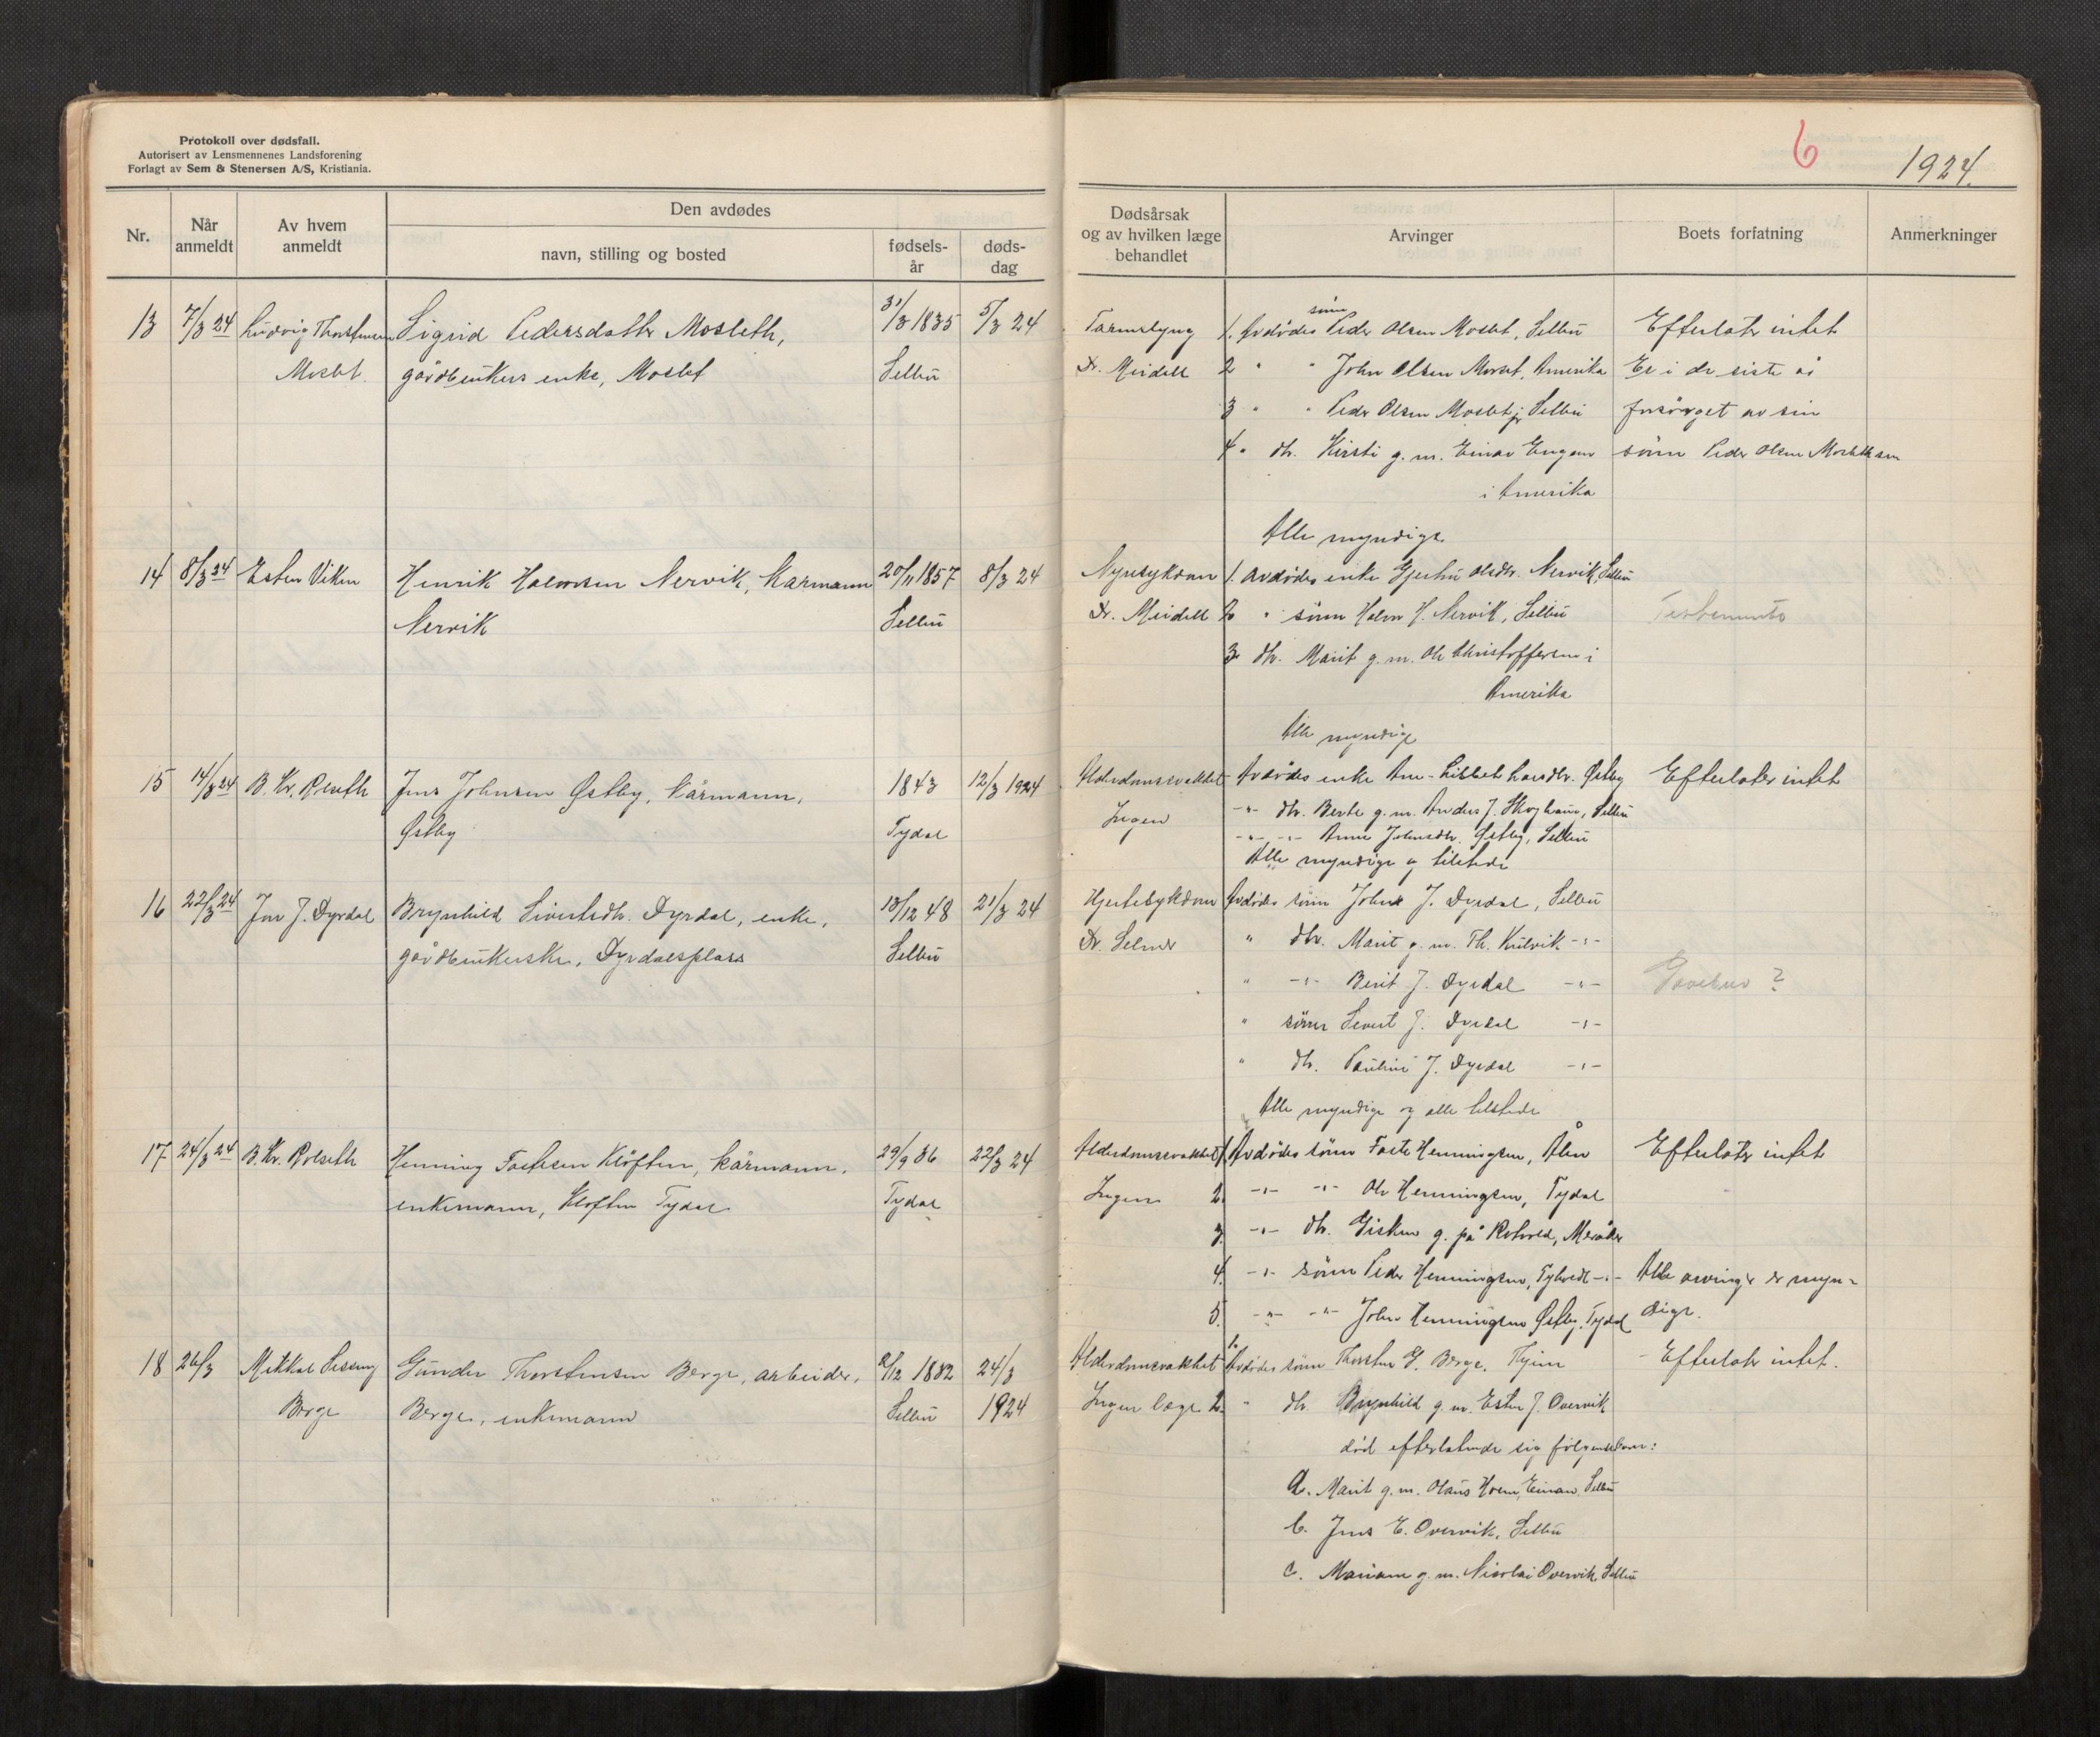 Protokoll over dødsfall.
Autorisert av Lensmennenes Landsforening
Forlagt av Sem & Stenersen A/S, Kristiania.
6
1924.
Nr.
Når anmeldt
Av hvem anmeldt
Den avdødes
navn, stilling og bosted
fødsels-år
døds-dag
Dødsårsak og av hvilken læge behandlet
Arvinger
Boets forfatning
Anmerkninger
13 7/3 24 Ludvig Thorstensen Sigrid Pedersdatter Mosleth, 31/3 1835 5/3 24
Moslet gårdbrukers enke, Moslet Selbu
Tarmslyng 1. Avdødes sønn Peder Olsen Moslet, Selbu Efterlater intet
Dr. Meidell 2 " " John Olsen Moslet, Amerika Er i de siste år
3 " " Peder Olsen Moslet jr Selbu forsørget av sin
4 " dtr. Kirsti g. m. Einar Engan sønn Peder Olsen Mosleth sen
i Amerika
Alle myndige
14 8/3 24 Esten Viken Henrik Halvorsen Nervik, kårmann 20/11 1857 8/3 24
Nervik Selbu
Nyresykdom 1. Avdødes enke Gjertru Olsdtr. Nervik, Selbu
Dr. Meidell 2 " sønn Halvor H. Nervik, Selbu
3 dtr. Marit g. m. Ole Christoffersen i
Amerika
Alle myndige
15 14/3 24 B. Kr. Rolseth Jens Johnsen Østby, kårmann, 1843 12/3 1924
Østby Tydal
Alderdomssvakhet Avdødes enke Ane-Lisbet Larsdtr. Østby Efterlater intet
Ingen -"- dtr. Berte g. m. Anders J. Skoghaug, Selbu
-"- -"- Anne Johnsdtr. Østby, Selbu
Alle myndige og tilstede
16 22/3 24 Jon J. Dyrdal Brynhild Sivertsdtr. Dyrdal, enke, 13/12 48 21/3 24
gårdbrukerske, Dyrdalsplass Selbu
Hjertesykdom Avdødes sønn John J. Dyrdal, Selbu
Dr. Selmer " dtr. Marit g. m. Th. Kulvik -"-
" -"- Berit J. Dyrdal -"-
" sønn Sivert J. Dyrdal -"-
" dtr. Pauline J. Dyrdal -"-
Alle myndige og alle tilstede
17 24/3 24 B. Kr. Rolseth Henning Fastesen Kløften, kårmann, 29/9 36 22/3 24
enkemann, Kløften Tydal Tydal
Alderdomssvakhet 1. Avdødes sønn Faste Henningsen, Ålen Efterlater intet
Ingen 2. -"- -"- Ole Henningsen, Tydal
3. -"- dtr. Gisken g. på Rotvold, Meråker
4. -"- sønn Peder Henningsen, -"- Alle arvinger er myn-
5. -"- -"- John Henningsen Østby, Tydal dige.
18 26/3 Mikkal Gunder Thorstensen Berge, arbeider, 2/12 1832 24/3
Berge Berge, enkemann Selbu 1924
Alderdomssvakhet 1. Avdødes sønn Thorsten G. Berge, Efterlater intet.
Ingen læge 2. " dtr. Brynhild g. m. Esten J. Overvik
død efterlatende sig følgende barn:
a. Marit g. m. Olaus Hoem, Selbu
b. Jens E. Overvik, Selbu
c. Mariann g. m. Nicolai Overvik Selbu